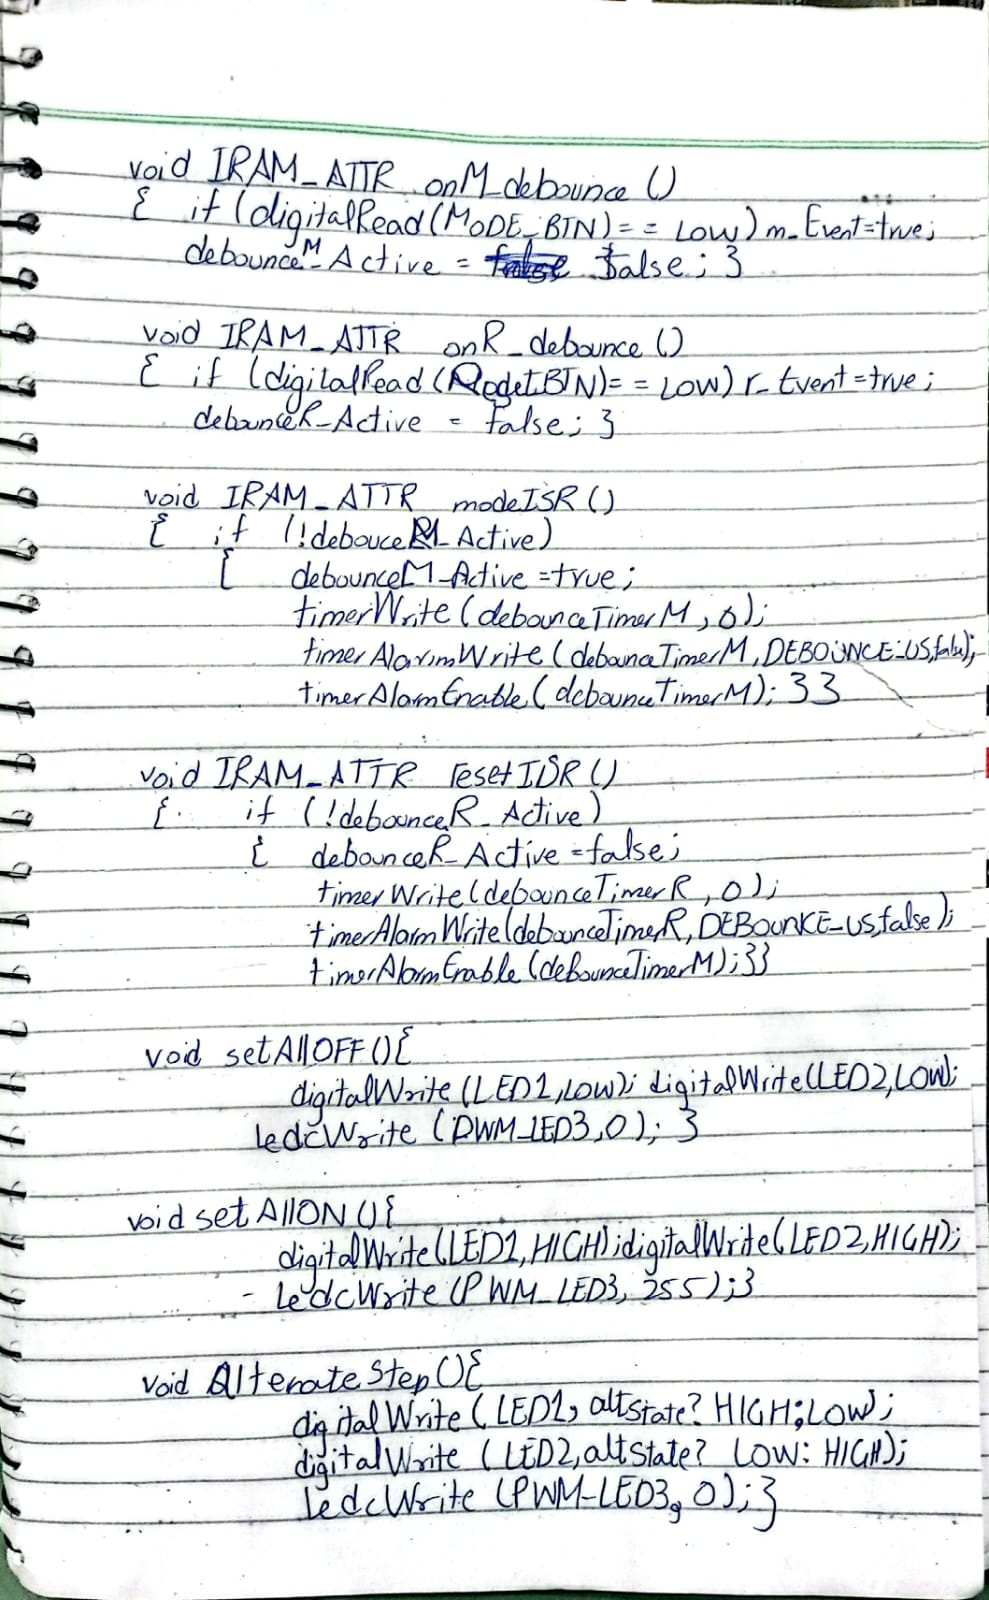 void IRAM_ATTR onM_debounce ()
{ if (digitalRead(MODE_BTN)== LOW) m_Event=true;
debounceM_Active = false; }
void IRAM_ATTR onR_debounce ()
{ if (digitalRead(ResetBTN)== LOW) r_Event=true;
debounceR_Active = false; }
void IRAM_ATTR modeISR ()
{ if (!debouceM_Active)
{ debounceM_Active =true;
timerWrite(debounceTimerM, 0);
timerAlarmWrite(debounceTimerM, DEBOUNCE_US,false);
timerAlarmEnable(debounceTimerM); }}
void IRAM_ATTR resetISR ()
{ if (!debounceR_Active)
{ debounceR_Active =false;
timerWrite(debounceTimerR, 0);
timerAlarmWrite(debounceTimerR, DEBOUNCE_US,false);
timerAlarmEnable(debounceTimerM);}}
void setAllOFF(){
digitalWrite(LED1,LOW); digitalWrite(LED2,LOW);
ledcWrite (PWM_LED3,0); }
void setAllON(){
digitalWrite(LED1,HIGH);digitalWrite(LED2,HIGH);
- ledcWrite(PWM_LED3, 255);}
void AlternateStep(){
digitalWrite (LED1, altState? HIGH:LOW);
digitalWrite (LED2,altState? LOW: HIGH);
ledcWrite (PWM_LED3, 0);}